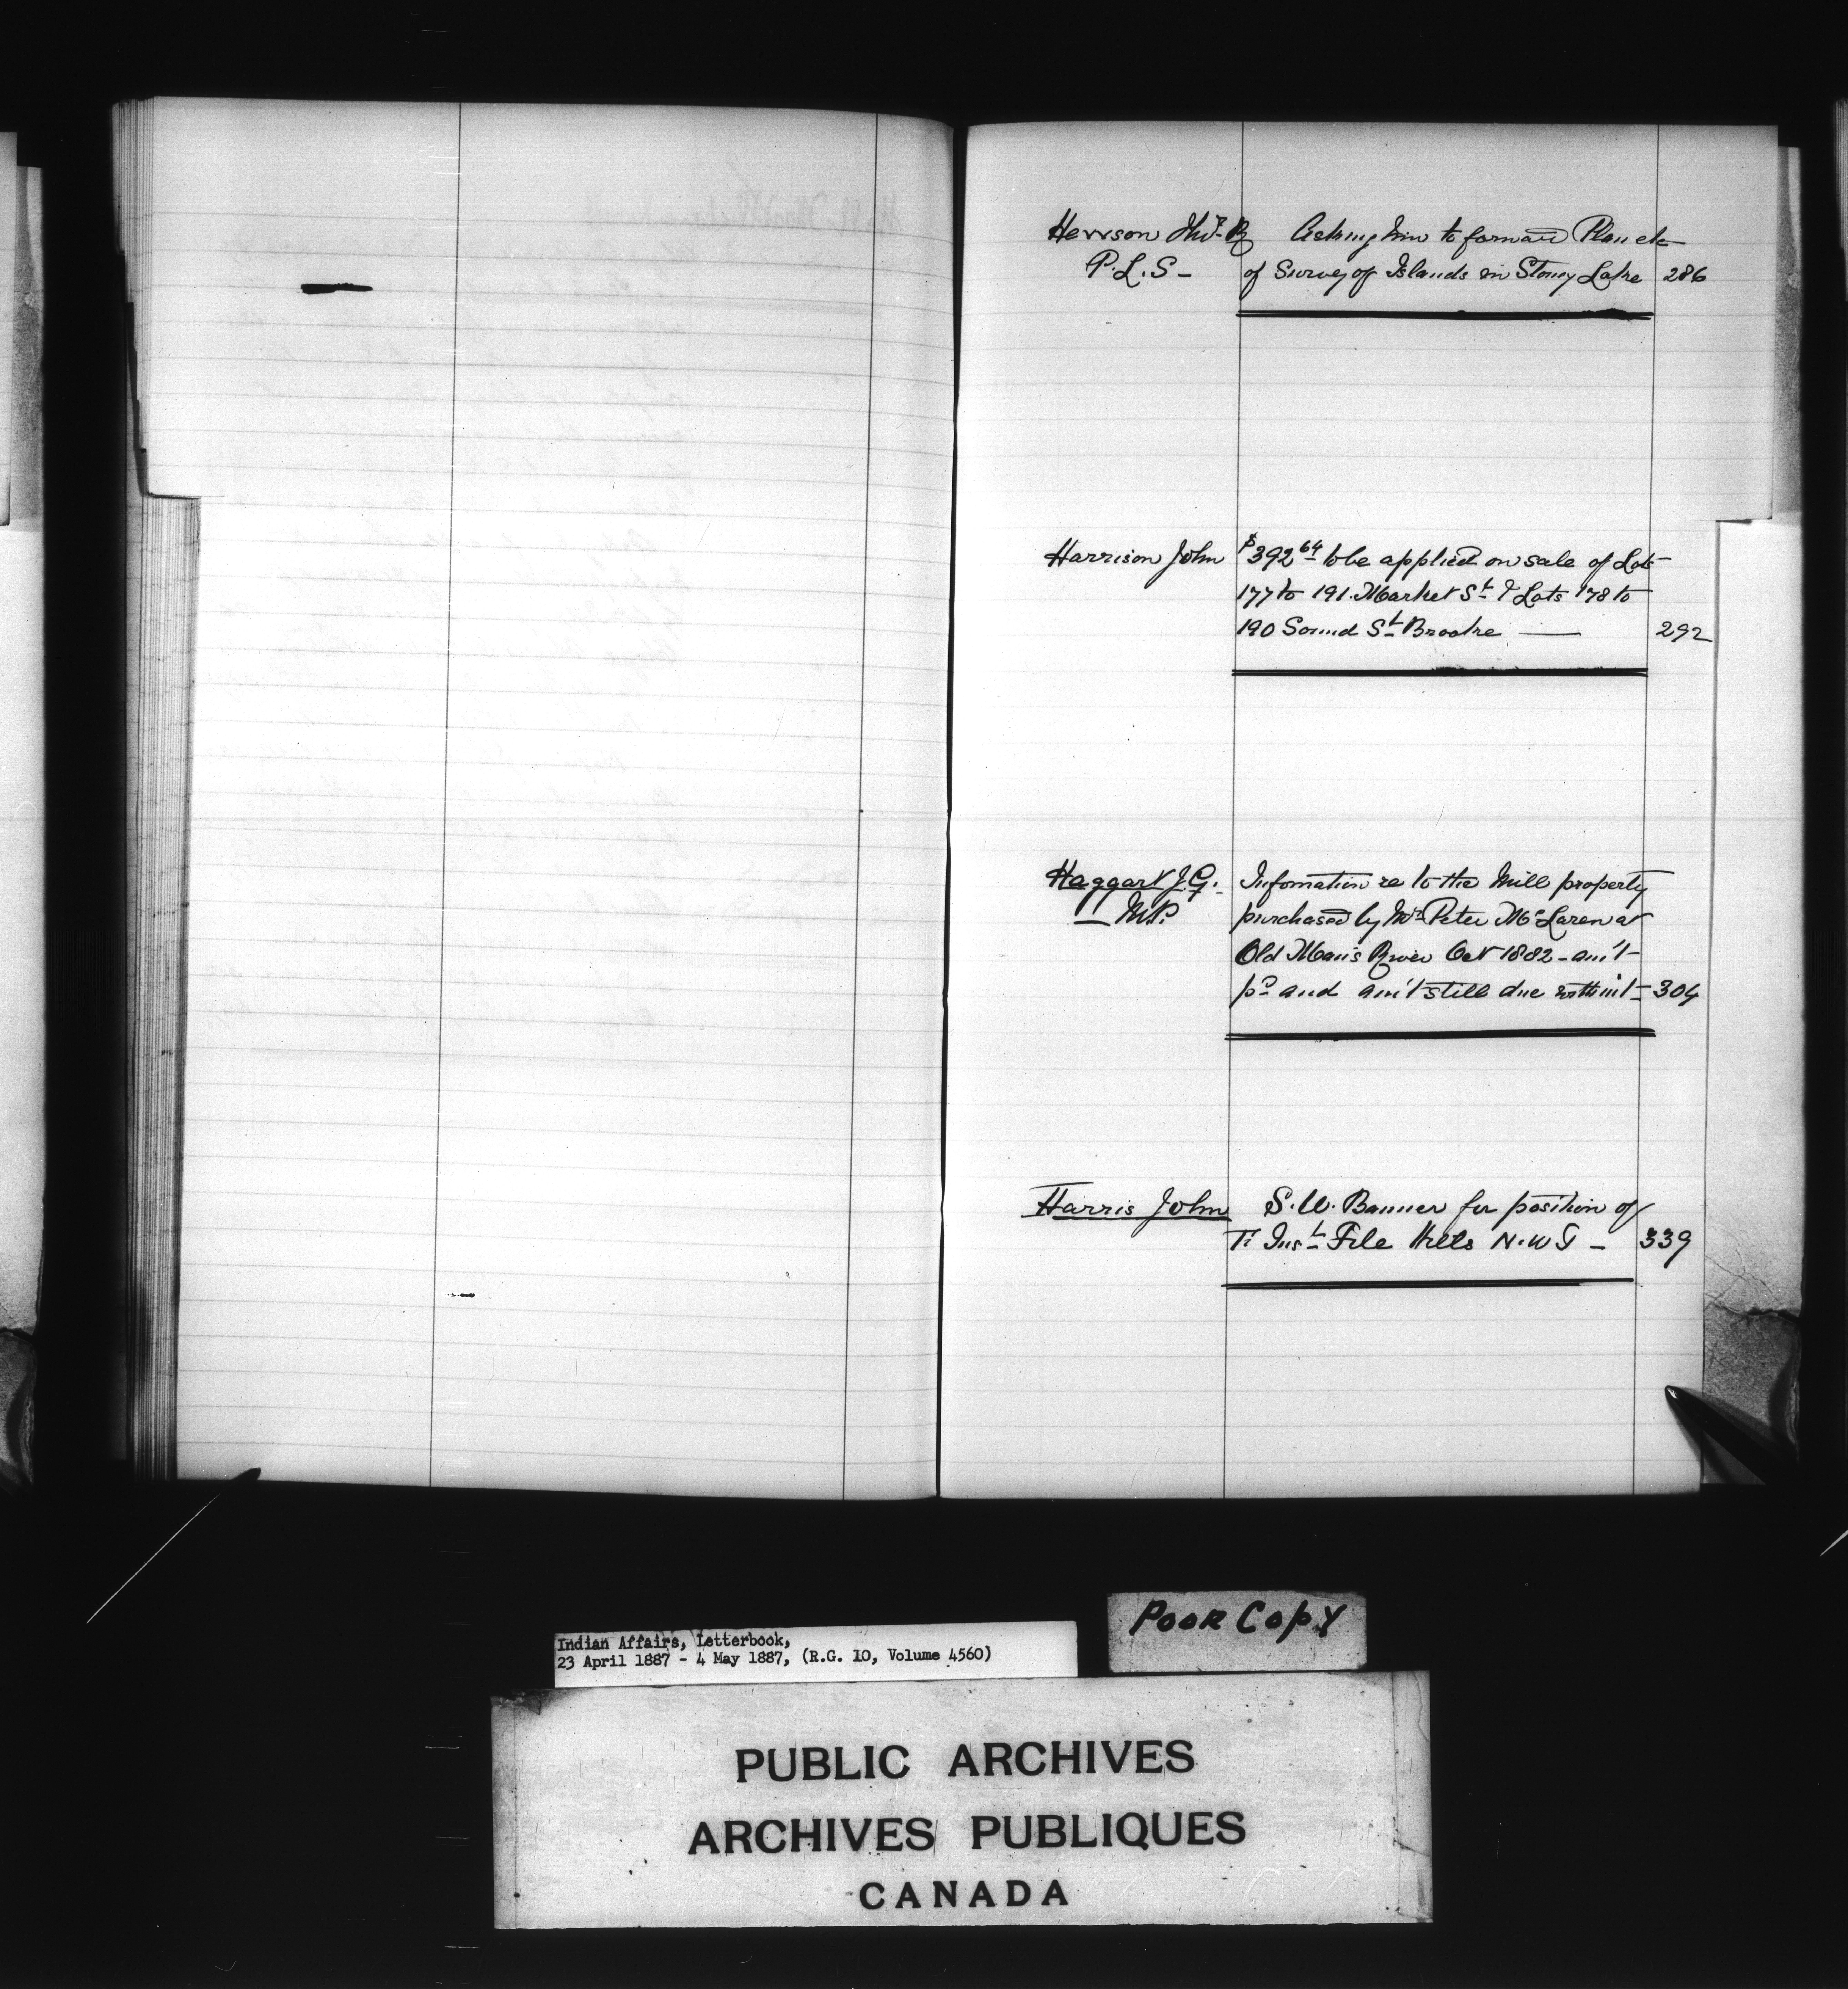 Hewson Thos. R Asking him to forward Plan etc
P.L.S - of Survey of Islands in Stoney Lake 286
Harrison John $392 64 to be applied on sale of Lots
177 to 191 Market St & Lots 178 to
190 Sound St Brooke — 292
Haggart J.G. Infomation re to the Mill property
— M.P. purchased by Mr Peter McLaren at
Old Man's River Oct 1882 - am't
pd and am't still due with int - 304
Harris John S.W. Banner for position of
Inst File Hills N.W.T - 339
Poor Copy
Indian Affairs, Letterbook,
23 April 1887 - 4 May 1887, (R.G. 10, Volume 4560)
PUBLIC ARCHIVES
ARCHIVES PUBLIQUES
CANADA